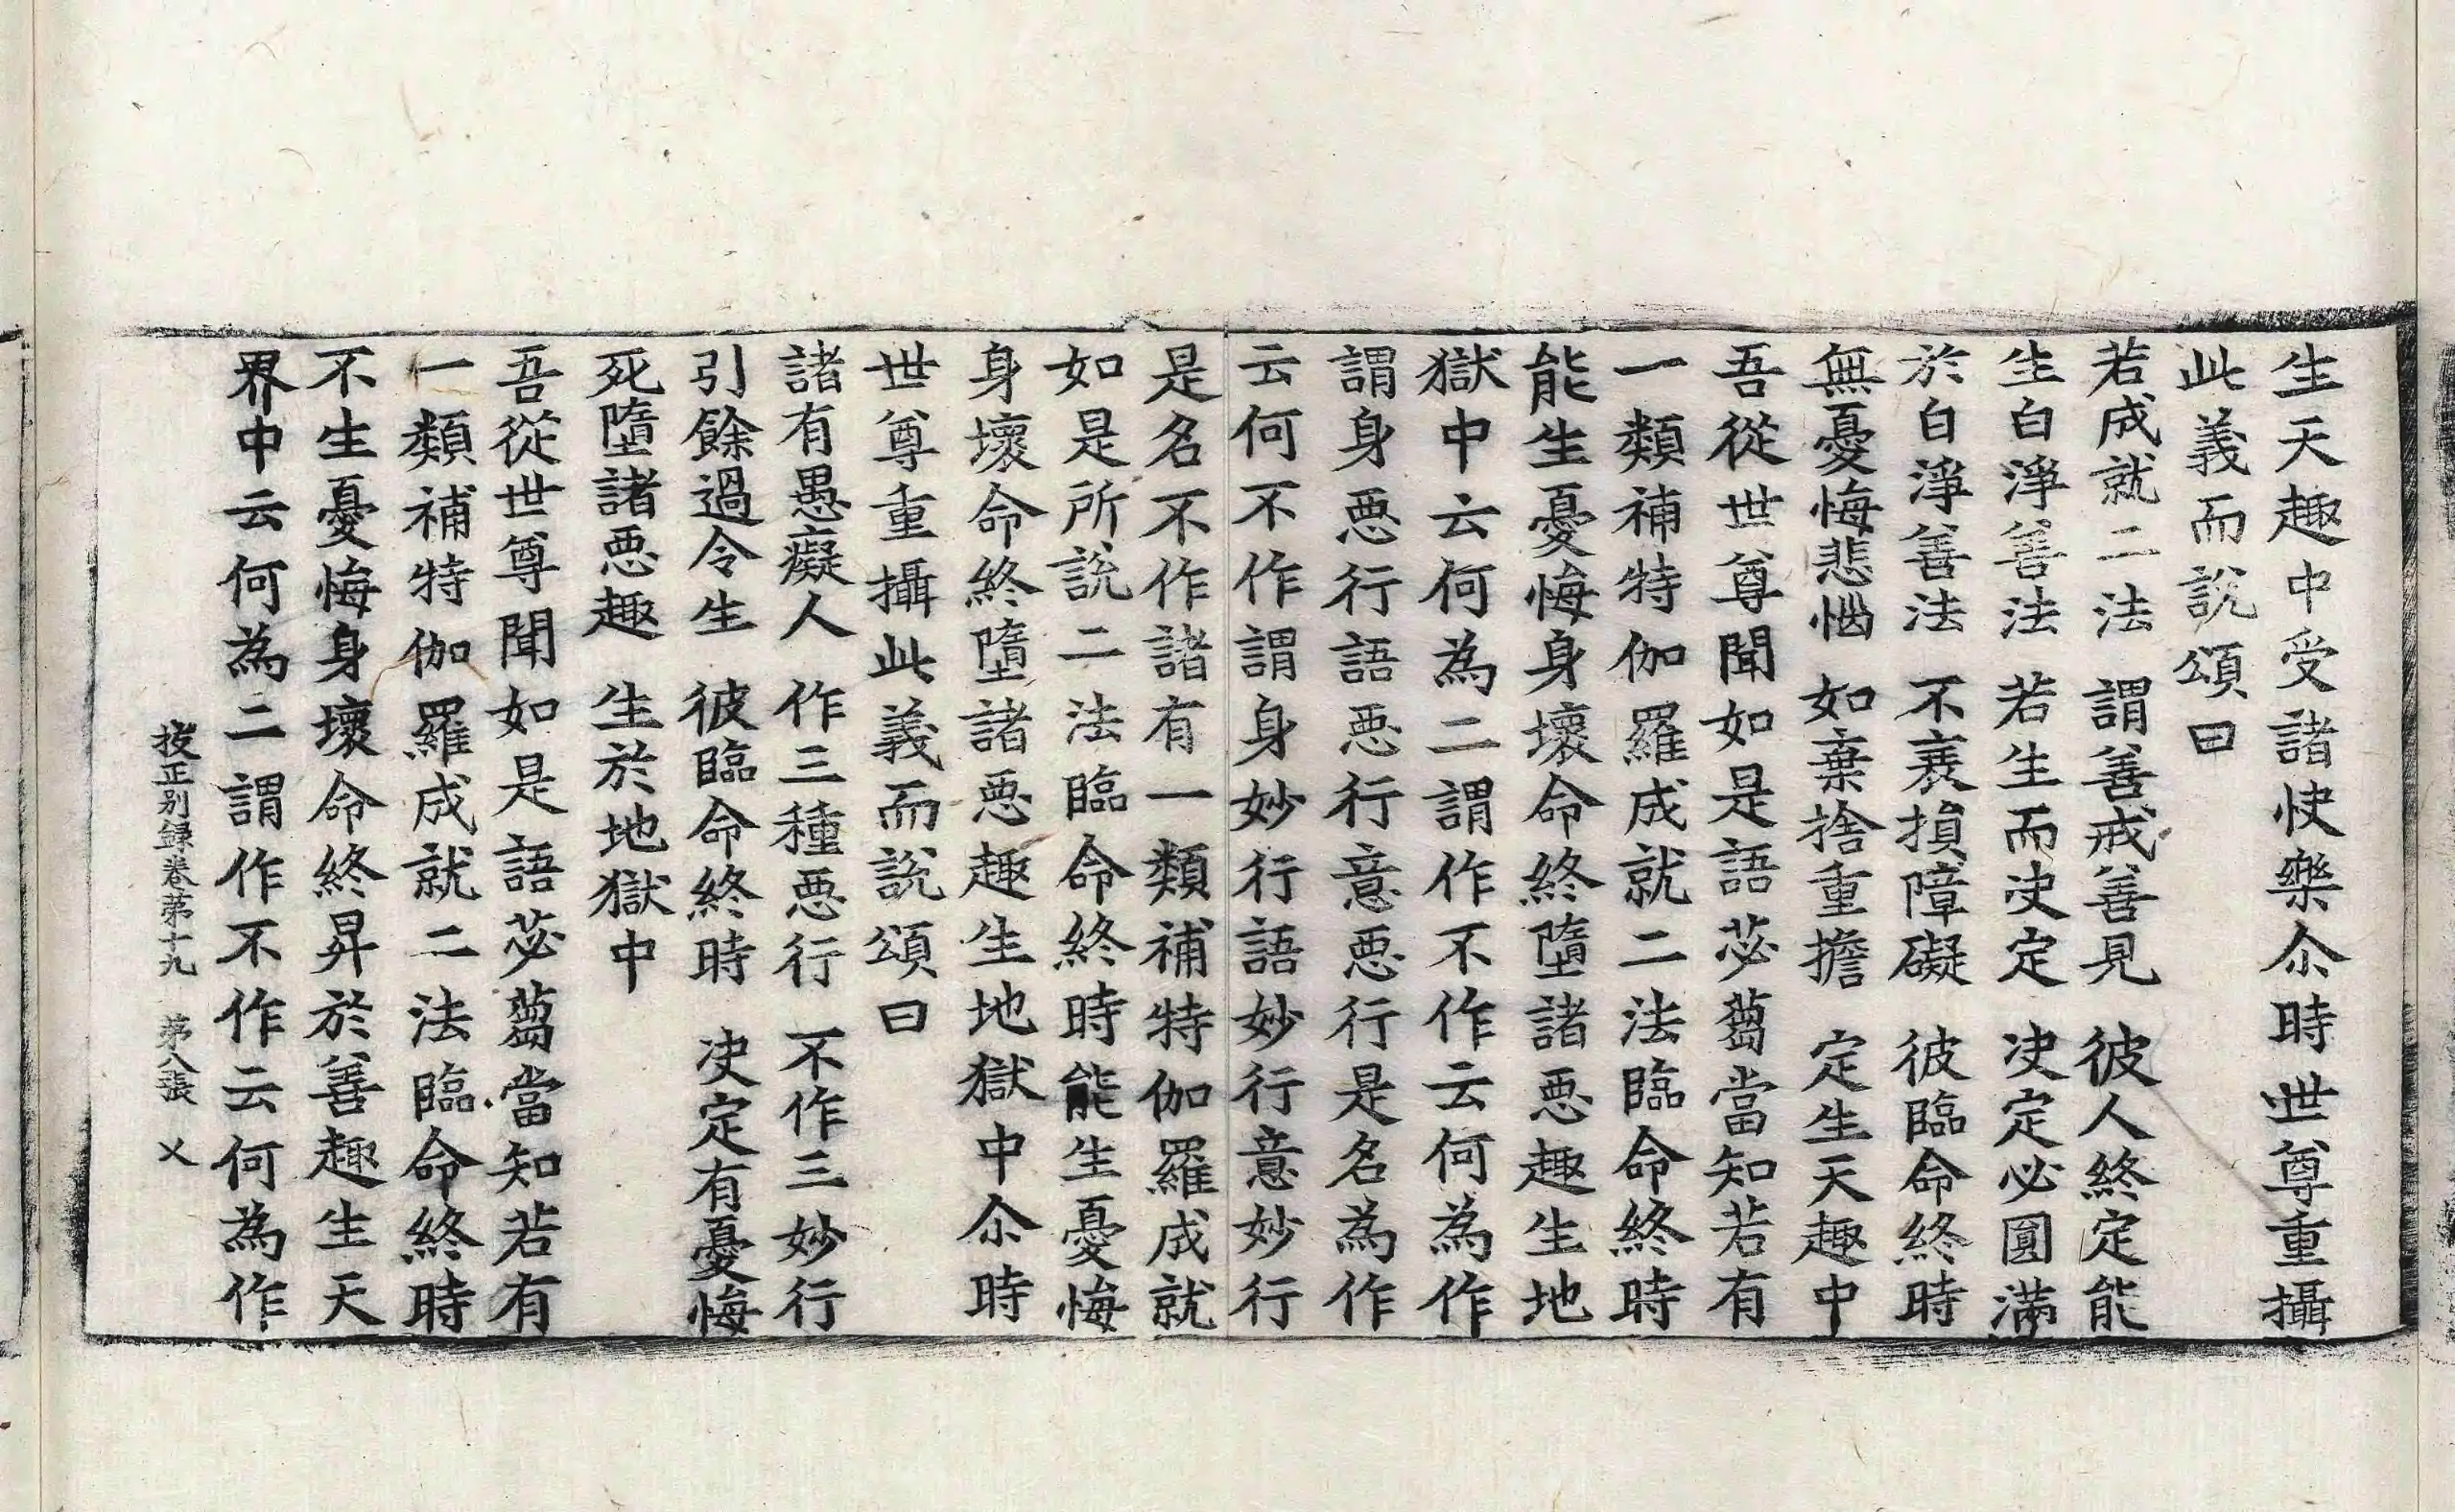 生天趣中受諸快樂尒時世尊重攝
此義而說頌曰
若成就二法　謂善戒善見　彼人終定能
生白淨善法　若生而決定　決定必圓滿
於白淨善法　不衰損障礙　彼臨命終時
無憂悔悲惱　如棄捨重擔　定生天趣中
吾從世尊聞如是語苾蒭當知若有
一類補特伽羅成就二法臨命終時
能生憂悔身壞命終墮諸惡趣生地
獄中云何為二謂作不作云何為作
謂身惡行語惡行意惡行是名為作
云何不作謂身妙行語妙行意妙行
是名不作諸有一類補特伽羅成就
如是所說二法臨命終時能生憂悔
身壞命終墮諸惡趣生地獄中尒時
世尊重攝此義而說頌曰
諸有愚癡人　作三種惡行　不作三妙行
引餘過令生　彼臨命終時　決定有憂悔
死墮諸惡趣　生於地獄中
吾從世尊聞如是語苾蒭當知若有
一類補特伽羅成就二法臨命終時
不生憂悔身壞命終昇於善趣生天
界中云何為二謂作不作云何為作
挍正別録卷苐十九　苐八張　㐅